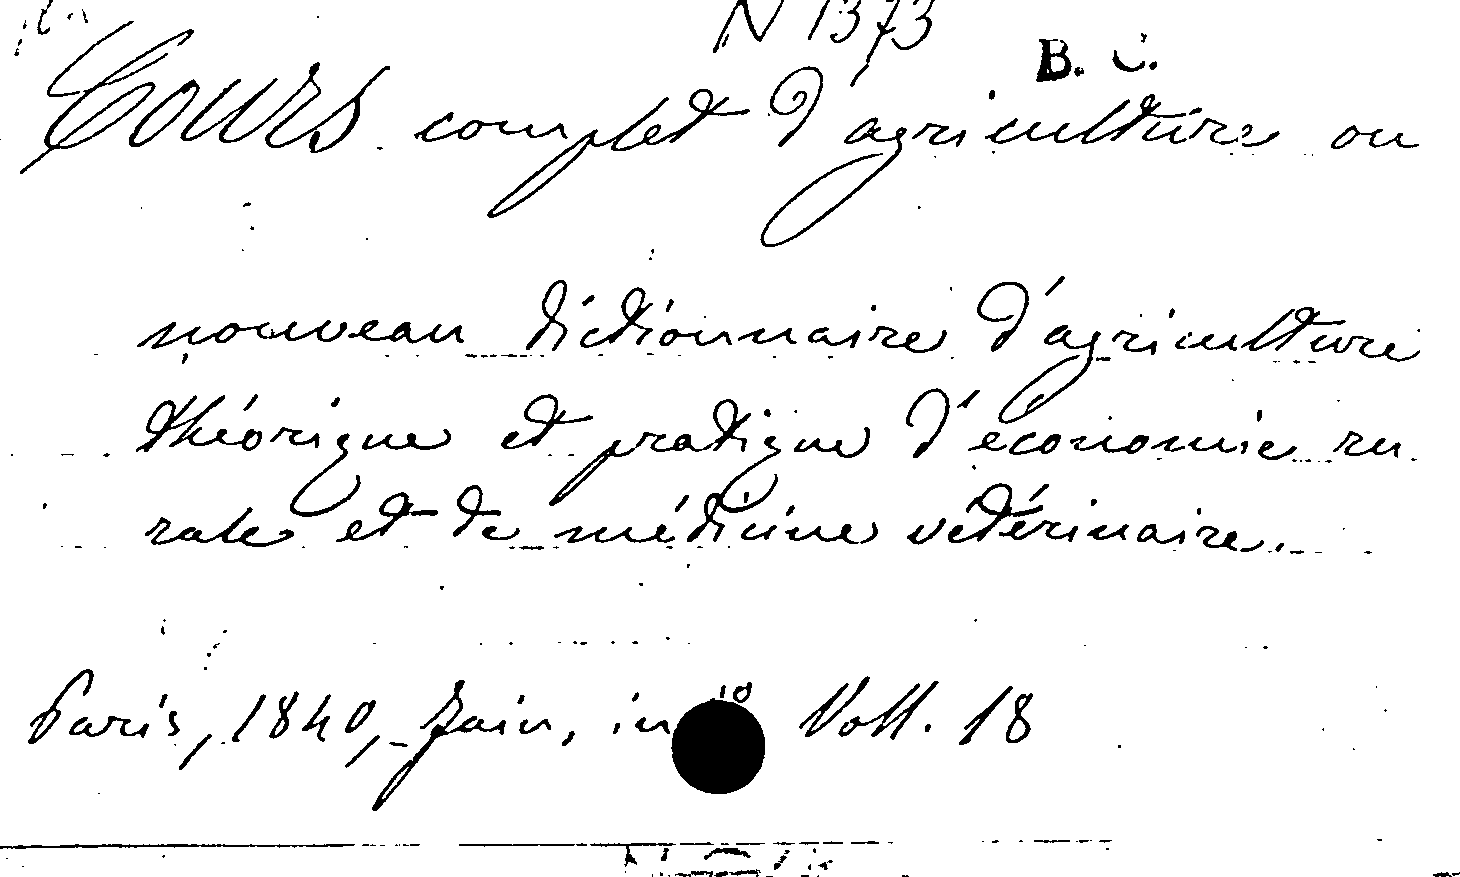 N 1373
B. C.
Cours complet d'agriculture ou
nouveau dictionnaire d'agriculture
théorique et pratique d'économie ru
rale et de médicine vétérinaire.
Paris, 1840, Jain, in Voll. 18